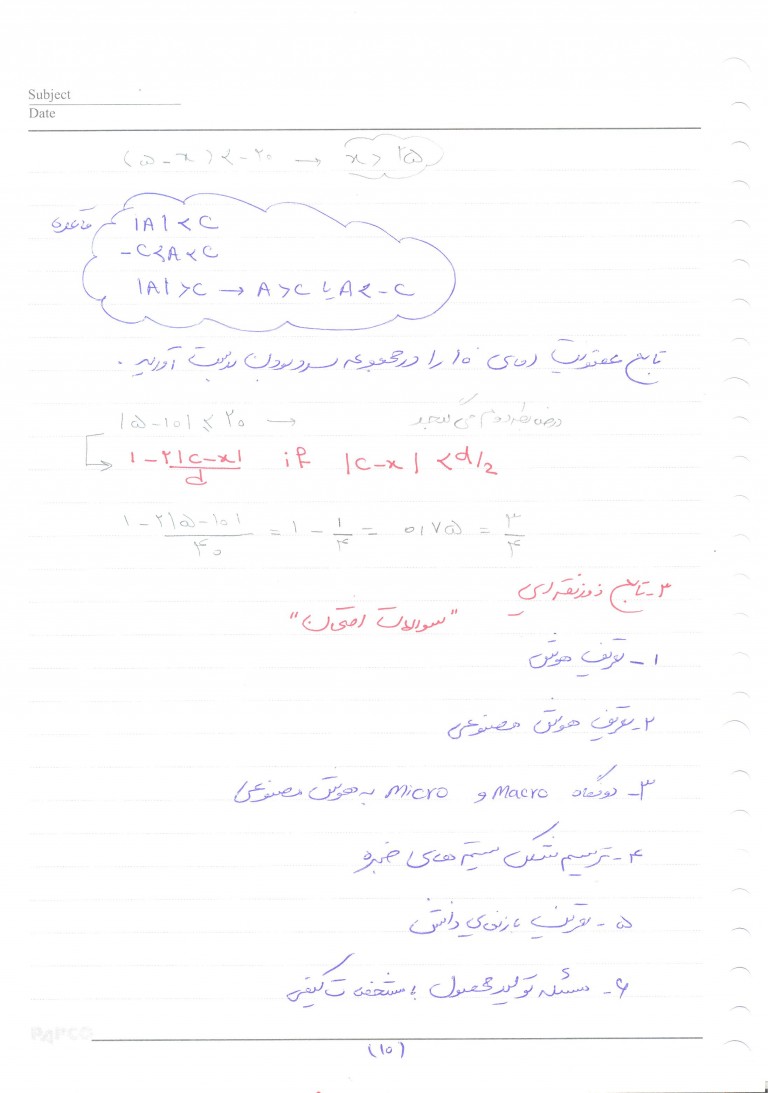 Subject
Date
(۵-x) < -۲۰ → x > ۲۵
قاعده‌ی |A| < C
-C < A < C
|A| > C → A > C یا A < -C
تابع عضویت دمای ۱۰ را در مجموعه سرد بودن بدست آورید.
|۵-۱۰| < ۲۰ → در ضابطه دوم می گنجد
۱ - ۲|c-x| / d if |c-x| < d/2
۱ - ۲|۵-۱۰| / ۴۰ = ۱ - ۱/۴ = ۰/۷۵ = ۳/۴
۳- تابع ذوزنقه ای
"سوالات امتحان"
۱- تعریف هوش
۲- تعریف هوش مصنوعی
۳- دیدگاه Macro و Micro به هوش مصنوعی
۴- ترسیم شکل سیستم های خبره
۵- تعریف بازنمایی دانش
۶- مسئله تولید محصول با مشخصات کیفی
PAPCO
(۱۰)